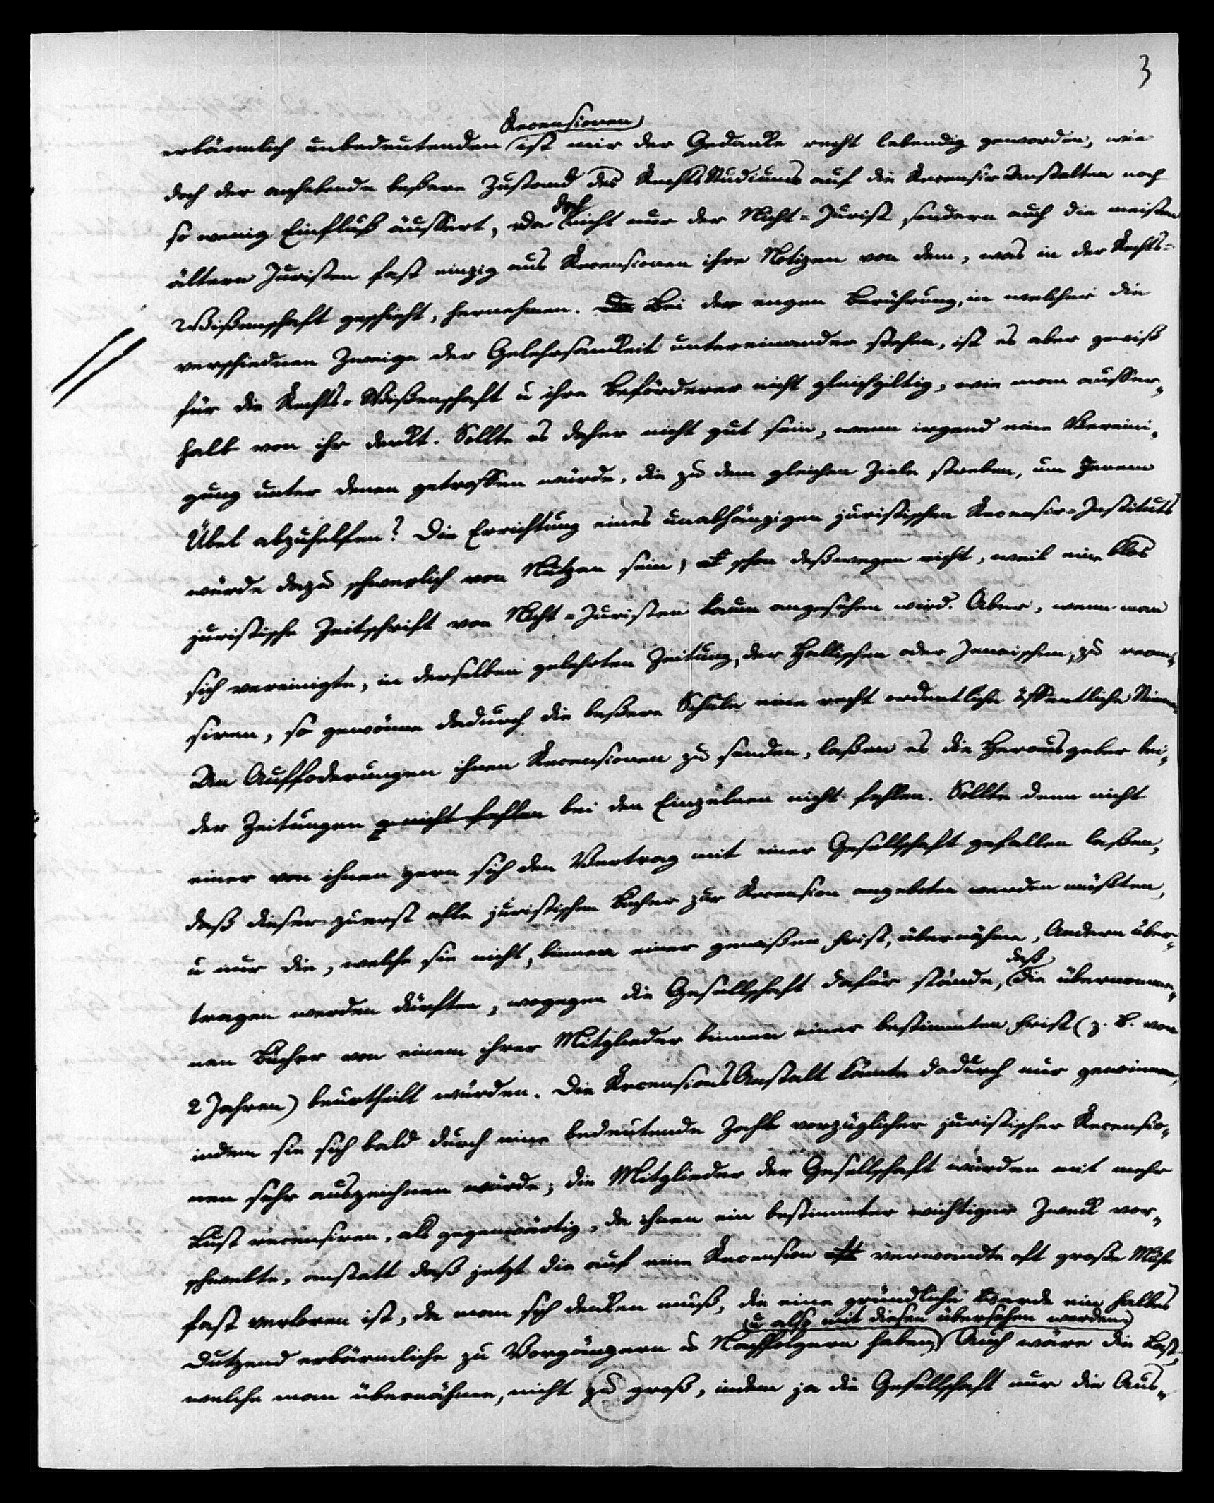 3
Recensionen
erbärmlich unbedeutenden ist mir der Gedanke recht lebendig geworden, wie
doch der anhebende beßere Zustand des RechtsStudiums auf die RecensirAnstalten noch
so wenig Einfluß äussert, da doch nicht nur der Nicht-Jurist sondern auch die meisten
ältern Juristen fast einzig aus Recensionen ihre Notizen von dem, was in der Rechts-
Wißenschaft geschieht, hernehmen. Bei der engen Berührung, in welcher die
verschiednen Zweige der Gelehrsamkeit untereinander stehen, ist es aber gewiß
für die Rechts-Wißenschaft u ihre Beförderer nicht gleichgiltig, wie man ausser-
halb von ihr denkt. Sollte es daher nicht gut sein, wenn irgend eine Vereini-
gung unter denen getroffen würde, die zu dem gleichen Ziele streben, um jenem
Übel abzuhelfen? Die Errichtung eines unabhängigen juristischen Recensir-Instituts
würde dazu schwerlich von Nutzen sein, schon deßwegen nicht, weil eine blos
juristische Zeitschrift von Nicht-Juristen kaum angesehen wird. Aber, wenn man
sich vereinigte, in derselben gelehrten Zeitung, der Hallischen oder Jenaischen, zu recen-
siren, so gewönne dadurch die beßere Schule eine recht ordentliche öffentliche Stimme
An Auffoderungen ihnen Recensionen zu senden, laßen es die Herausgeber bei-
der Zeitungen nicht fehlen bei den Einzelnen nicht fehlen. Sollte denn nicht
einer von ihnen gern sich den Vertrag mit einer Gesellschaft gefallen laßen,
daß dieser zuerst alle juristischen Bücher zur Recension angeboten werden müßten,
u nur die, welche sie nicht, binnen einer gewißen Frist, übernähme, Andern über-
tragen werden dürften, wogegen die Gesellschaft dafür stände, daß die übernomme-
nen Bücher von einem ihrer Mitglieder binnen einer bestimmten Frist (z. B. von
2 Jahren) beurtheilt würden. Die RecensionsAnstalt könnte dadurch nur gewinnen,
indem sie sich bald durch eine bedeutende Zahl vorzüglicher juristischer Recensio-
nen sehr auszeichnen würde; die Mitglieder der Gesellschaft würden mit mehr
Lust recensiren, als gegenwärtig, da ihnen ein bestimmter wichtiger Zweck vor-
schwebte, anstatt daß jetzt die auf eine Recension verwendte oft große Mühe
fast verloren ist, da man sich denken muß, die eine gründliche werde ein halbes
u also mit diesen übersehen werden
Dutzend erbärmliche zu Vorgängern u Nachfolgern haben Auch wäre die Last,
welche man übernähme, nicht zu groß, indem ja die Gesellschaft nur die Aus-